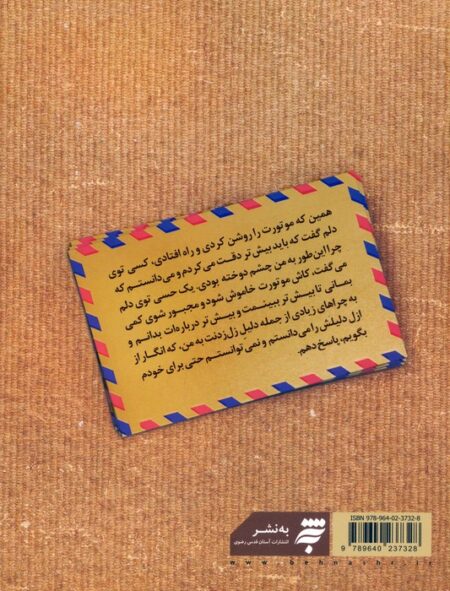 همین که موتورت را روشن کردی و راه افتادی، کسی توی
دلم گفت که باید بیش‌تر دقت می‌کردم و می‌دانستم که
چرا این‌طور به من چشم دوخته بودی. یک حسی توی دلم
می‌گفت، کاش موتورت خاموش شود و مجبور شوی کمی
بمانی تا بیش‌تر ببینمت و بیش‌تر درباره‌ات بدانم و
به چراهای زیادی از جمله دلیل زل‌زدنت به من، که انگار از
ازل دلیلش را می‌دانستم و نمی‌توانستم حتی برای خودم
بگویم، پاسخ دهم.
به‌نشر
انتشارات آستان قدس رضوی
www.behnashr.ir
ISBN 978-964-02-3732-8
9 789640 237328